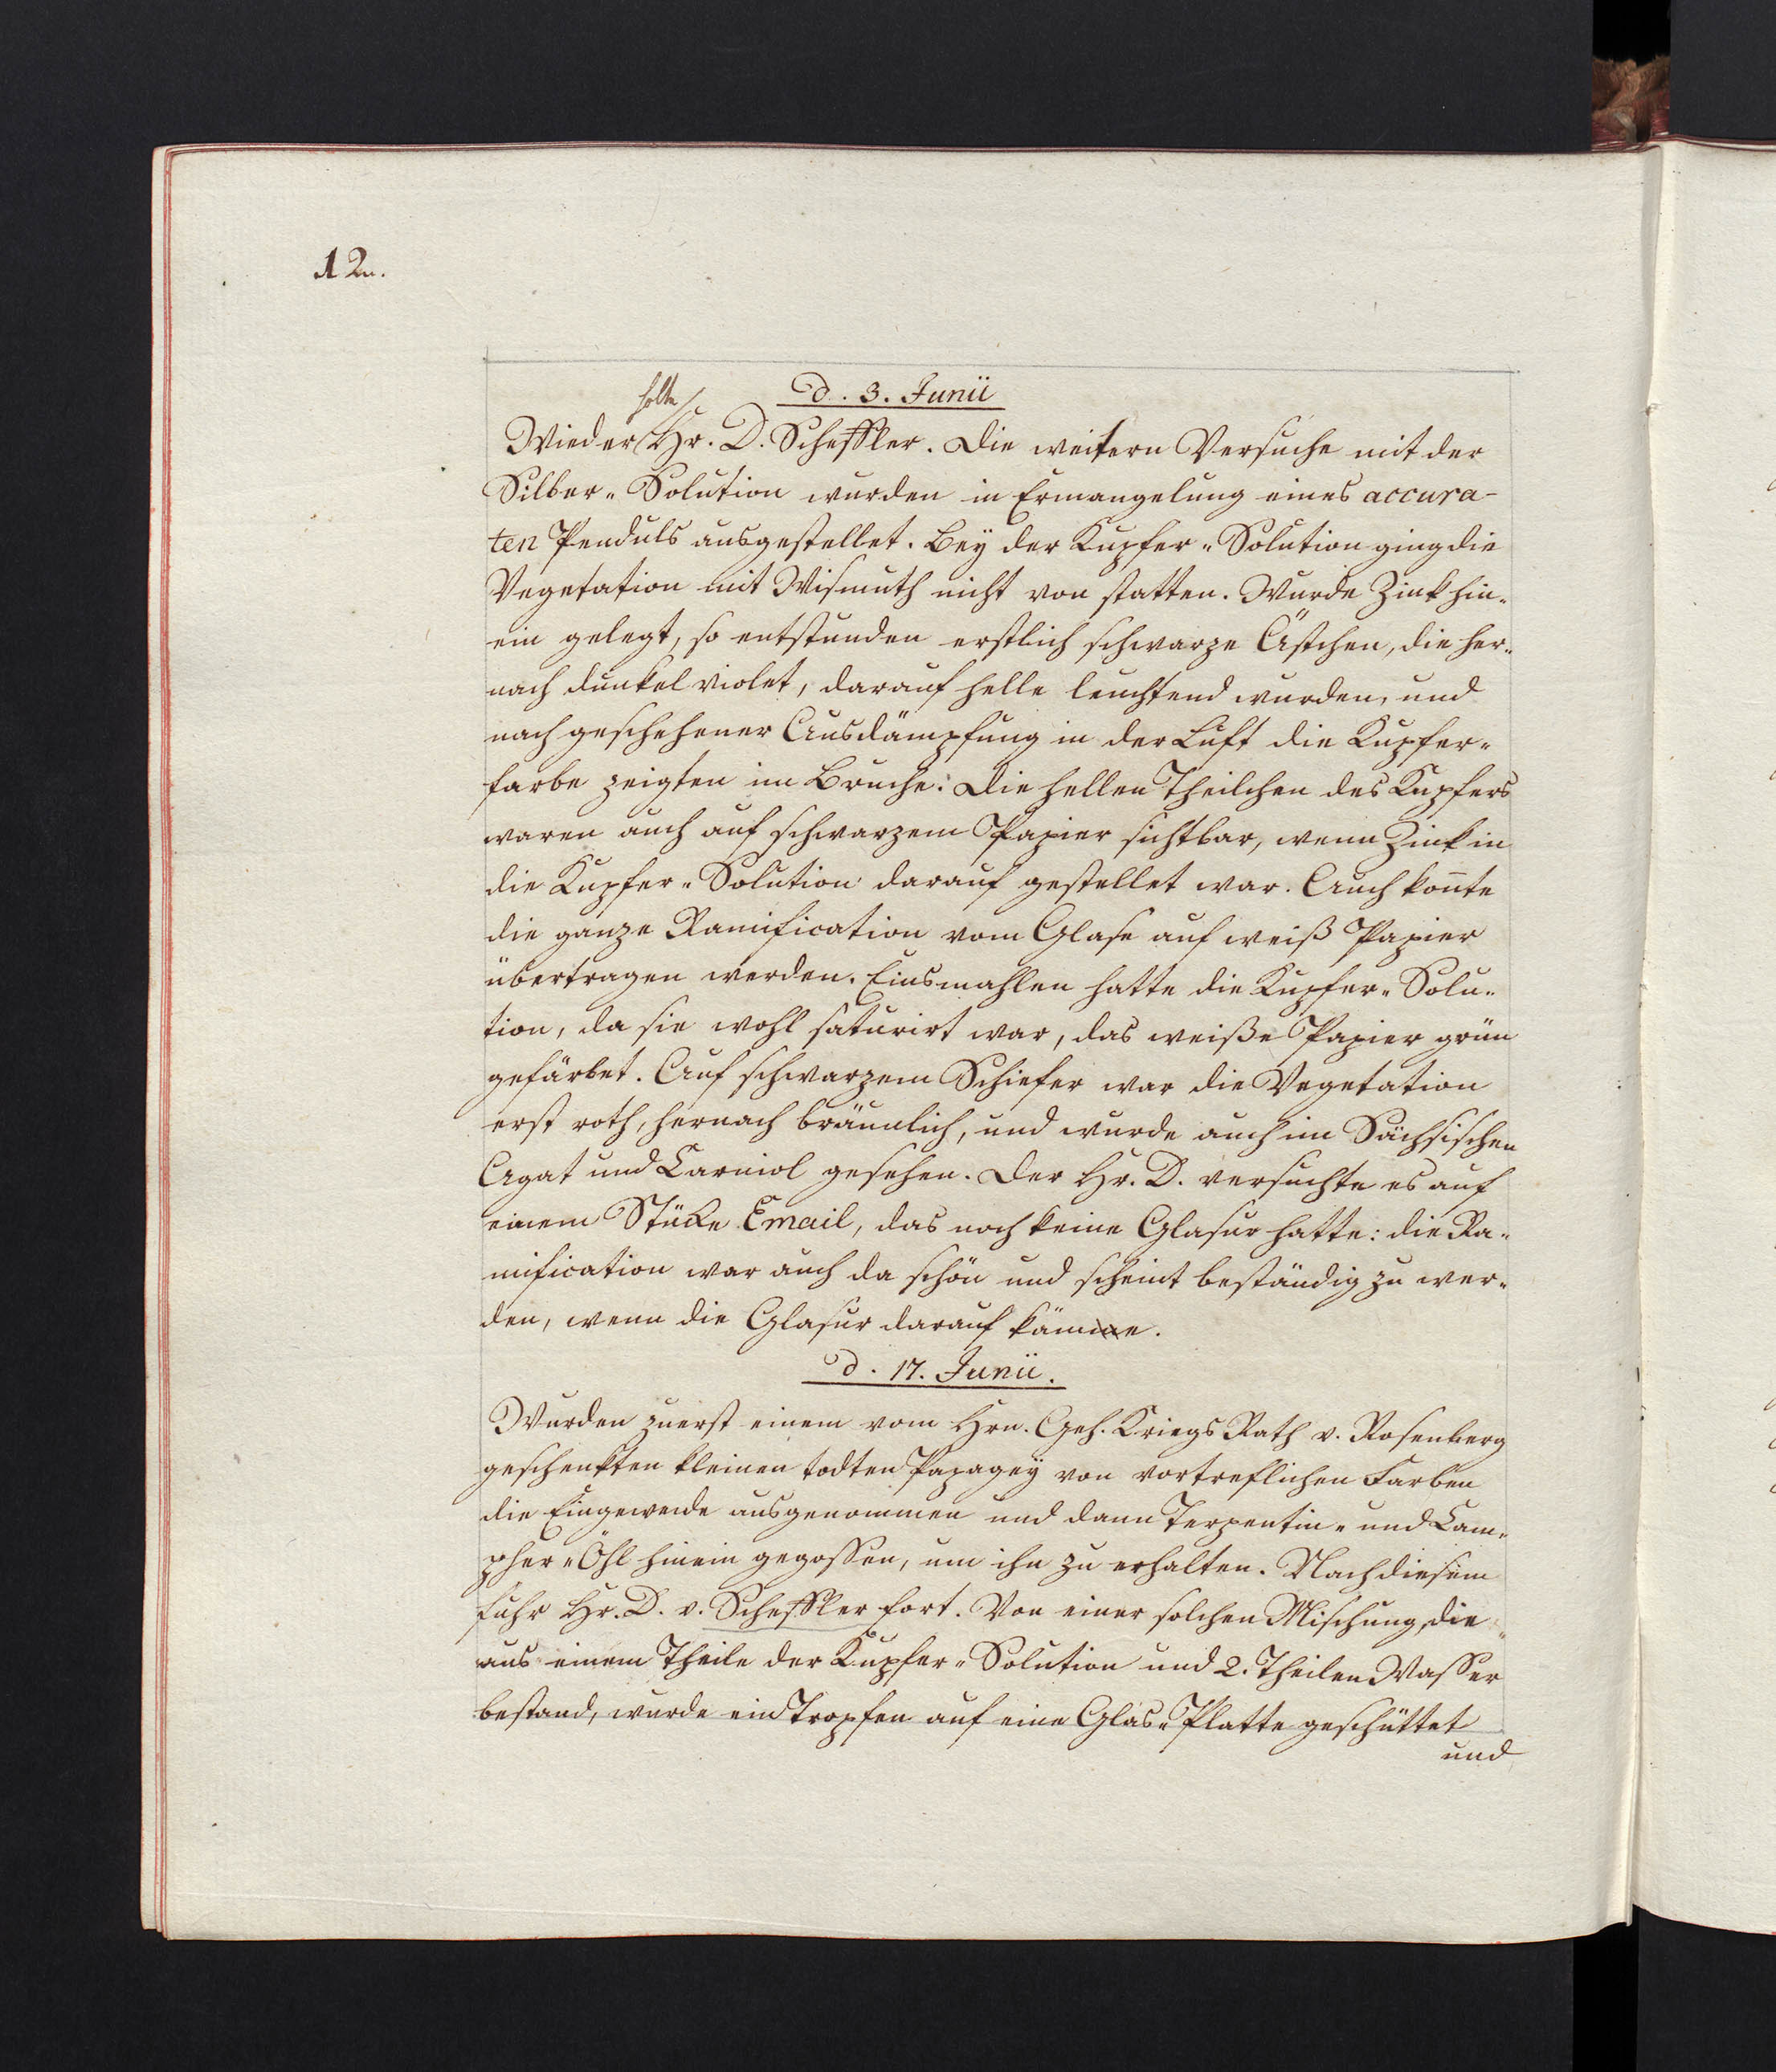 12.
d. 3. Junii
holte
Wieder Hr. D. Scheffler. Die weitern Versuche mit der
Silber-Solution wurden in Ermangelung eines accura-
ten Penduls ausgestellet. Bey der Kupfer-Solution ging die
Vegetation mit Wismuth nicht von statten. Wurde Zink hin-
ein gelegt, so entstunden erstlich schwarze Ästchen, die her-
nach dunkel violet, darauf helle leuchtend wurden, und
nach geschehener Ausdämpfung in der Luft die Kupfer-
farbe zeigten im Bruche: Die hellen Theilchen des Kupfers
waren auch auf schwarzem Papier sichtbar, wenn Zink in
die Kupfer-Solution darauf gestellet war. Auch kon̄te
die ganze Ramification vom Glase auf weiß Papier
übertragen werden. Einsmahlen hatte die Kupfer-Solu-
tion, da sie wohl saturirt war, das weiße Papier grün
gefärbet. Auf schwarzem Schiefer war die Vegetation
erst roth, hernach bräunlich, und wurde auch im Sächsischen
Agat und Carniol gesehen. Der Hr. D. versuchte es auf
einem Stücke Email, das noch keine Glasur hatte: die Ra-
mification war auch da schön und scheint beständig zu wer-
den, wenn die Glasur darauf käme.
d. 17. Junii.
Wurden zuerst einem vom Hrn. Geh. Kriegs Rath v. Rosenberg
geschenkten kleinen todten Papagey von vortreflichen Farben
die Eingeweide ausgenommen und dann Terpentin- und Cam-
pher-Öhl hinein gegossen, um ihn zu erhalten. Nach diesem
fuhr Hr. D. v. Scheffler fort. Von einer solchen Mischung, die
aus einem Theile der Kupfer-Solution und 2. Theilen Wasser
bestand, wurde ein Tropfen auf eine Glas-Platte geschüttet
und